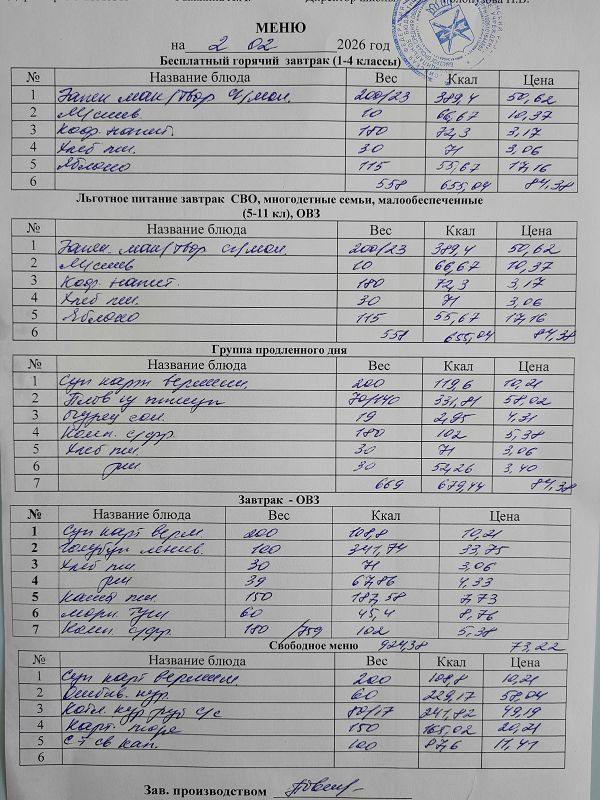 МЕНЮ
на 2 02 2026 год
Бесплатный горячий завтрак (1-4 классы)
№ Название блюда Вес Ккал Цена
1 Запек ман/твор с/мол. 200/23 389,4 50,62
2 М/слив 10 66,67 10,37
3 Коф. напит. 180 72,3 3,17
4 Хлеб пш. 30 71 3,06
5 Яблоко 115 55,67 17,16
6 558 655,04 84,38
Льготное питание завтрак СВО, многодетные семьи, малообеспеченные
(5-11 кл), ОВЗ
№ Название блюда Вес Ккал Цена
1 Запек ман/твор с/мол. 200/23 389,4 50,62
2 М/слив 10 66,67 10,37
3 Коф. напит. 180 72,3 3,17
4 Хлеб пш. 30 71 3,06
5 Яблоко 115 55,67 17,16
6 558 655,04 84,38
Группа продленного дня
№ Название блюда Вес Ккал Цена
1 Суп карт вермиш. 200 119,6 10,21
2 Плов 70/140 331,81 58,02
3 Огурец сол. 19 2,95 4,31
4 Комп. с/фр. 180 102 5,38
5 Хлеб пш. 30 71 3,06
6 рж 30 52,26 3,40
7 669 679,44 84,38
Завтрак - ОВЗ
№ Название блюда Вес Ккал Цена
1 Суп карт верм 200 108,8 10,21
2 Голубцы ленив. 100 341,74 33,75
3 Хлеб пш. 30 71 3,06
4 рж 39 67,86 4,33
5 Каша пш. 150 187,58 7,73
6 морк. туш 60 45,4 8,76
7 Комп. с/фр. 180 /759 102 5,38
Свободное меню 924,38 73,22
№ Название блюда Вес Ккал Цена
1 Суп карт вермиш 200 108,8 10,21
2 Отбив. кур. 60 229,17 58,04
3 Котл. кур 80/17 241,82 49,19
4 Карт. пюре 150 165,02 20,21
5 С-т св кап. 100 87,6 17,41
6
Зав. производством